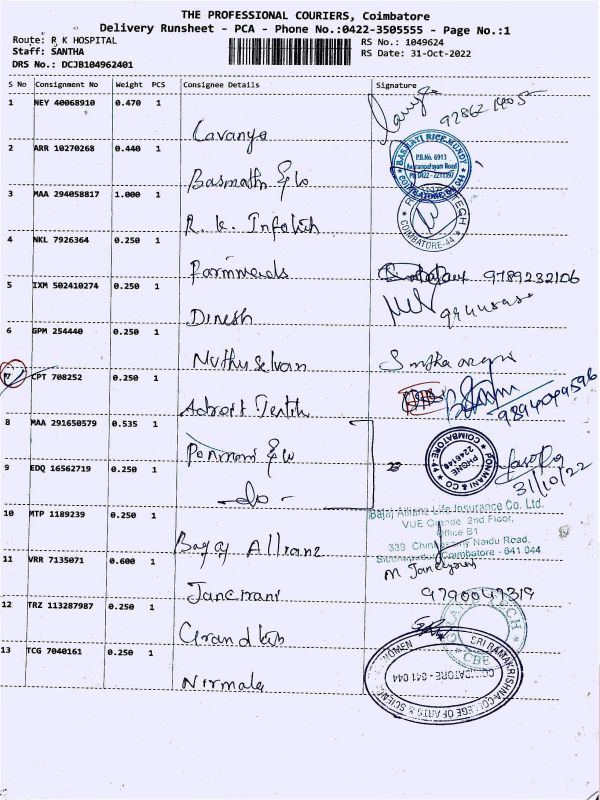 THE PROFESSIONAL COURIERS, Coimbatore
Delivery Runsheet - PCA - Phone No.:0422-3505555 - Page No.:1
Route: R K HOSPITAL
Staff: SANTHA
DRS No.: DCJB104962401
RS No.: 1049624
RS Date: 31-Oct-2022
S No Consignment No Weight PCS Consignee Details Signature
1 NEY 40068910 0.470 1
Lavanya
2 ARR 10270268 0.440 1
BASMATI RICE MUNDY
P.B.No. 6913
Ph 0422 - 2211597
Basmathi &co
3 MAA 294058817 1.000 1
R. K. Infotech
COIMBATORE-44
4 NKL 7926364 0.250 1
9789232106
5 IXM 502410274 0.250 1
Dinesh
6 GPM 254440 0.250 1
Muthuselvan
7 CPT 708252 0.250 1
Advert Textile
9894099596
8 MAA 291650579 0.535 1
Ponmani &co
PONMANI & CO
PHONE
2246148
COIMBATORE-44
31/10/22
9 EDQ 16562719 0.250 1
-do-
10 MTP 1189239 0.250 1
Bajaj Allianz Life Insurance Co. Ltd.
VUE Grande 2nd Floor,
Office B1
339 Chinnaswamy Naidu Road,
Siddhapudur, Coimbatore - 641 044
Bajaj Allianz
11 VRR 7135071 0.600 1
M Jancyrani
Jancirani
9790047319
12 TRZ 113287987 0.250 1
CBE
13 TCG 7040161 0.250 1
SRI RAMAKRISHNA COLLEGE OF ARTS & SCIENCE
WOMEN
COIMBATORE - 641 044
Nirmala